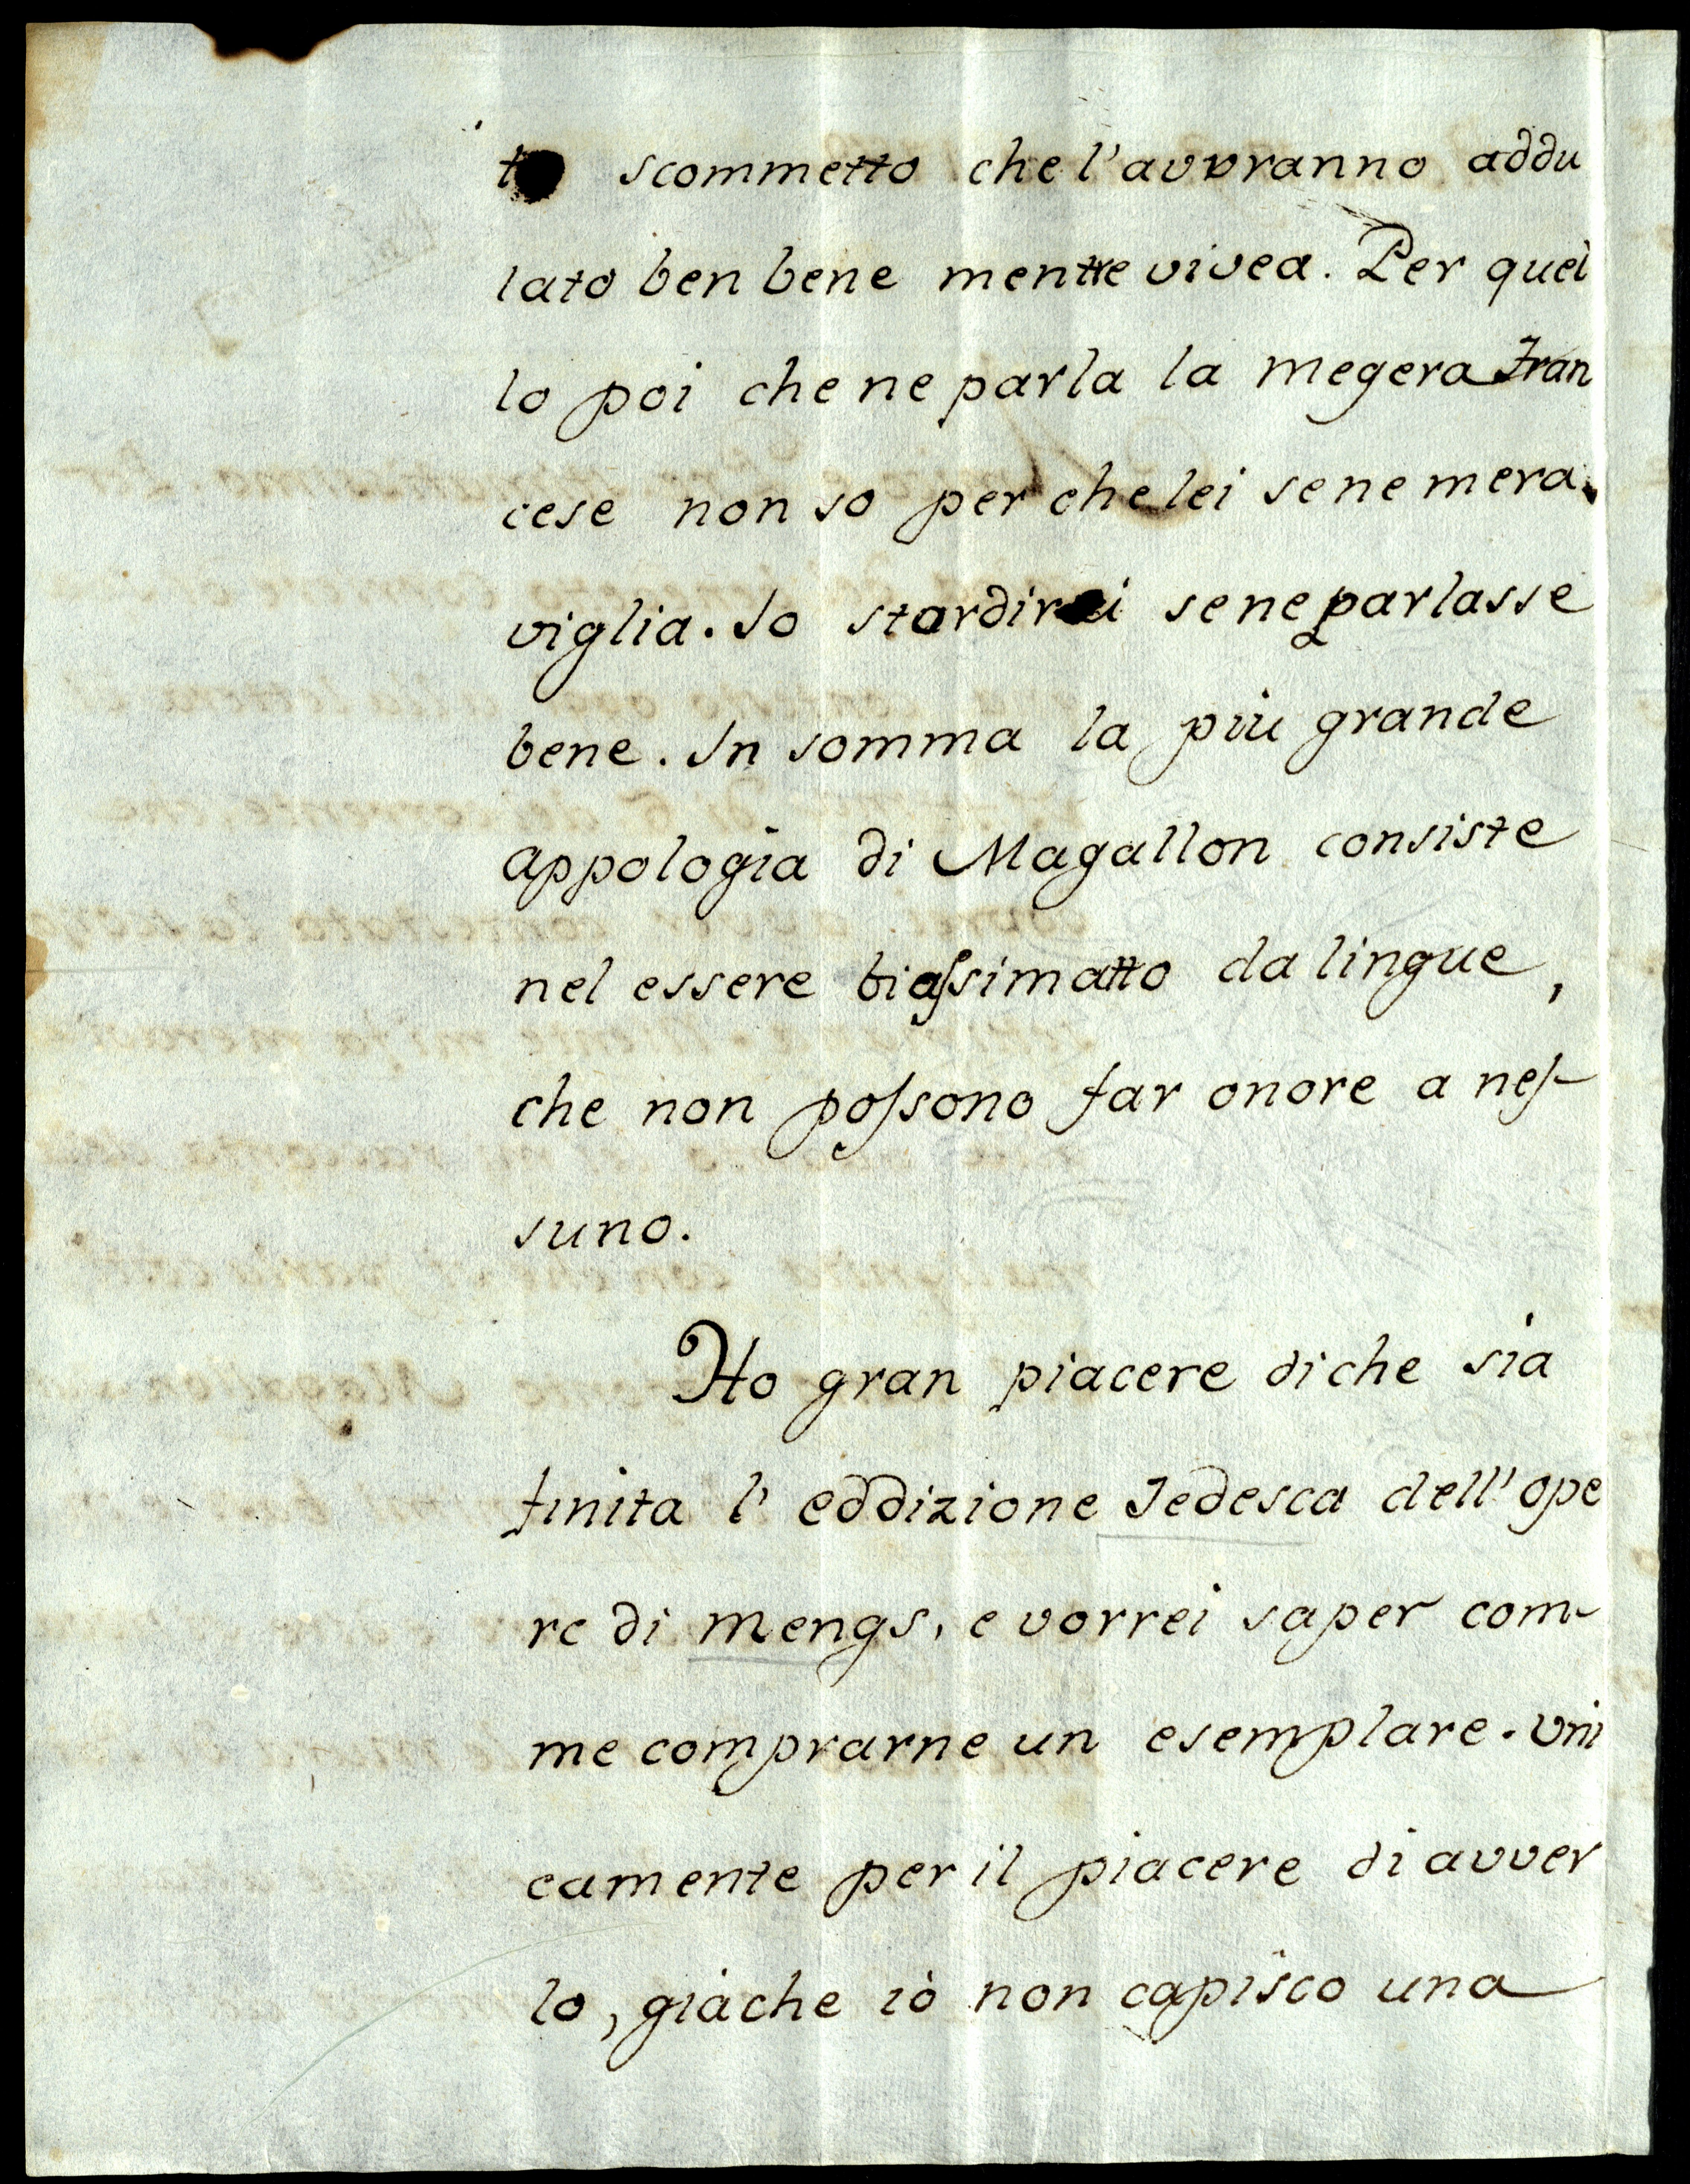 to scommetto che l'avvranno addu
lato ben bene mentre vivea. Per quel
lo poi che ne parla la megera Fran
cese non so per che lei se ne mera.
viglia. Io stordirei se ne parlasse
bene. In somma la piu grande
appologia di Magallon consiste
nel essere biassimatto da lingue,
che non possono far onore a nes-
suno.
Ho gran piacere di che sia
finita l'eddizione Tedesca dell'ope
re di Mengs, e vorrei saper com-
me comprarne un esemplare. Uni
camente per il piacere di avver
lo, giàche iò non capisco una